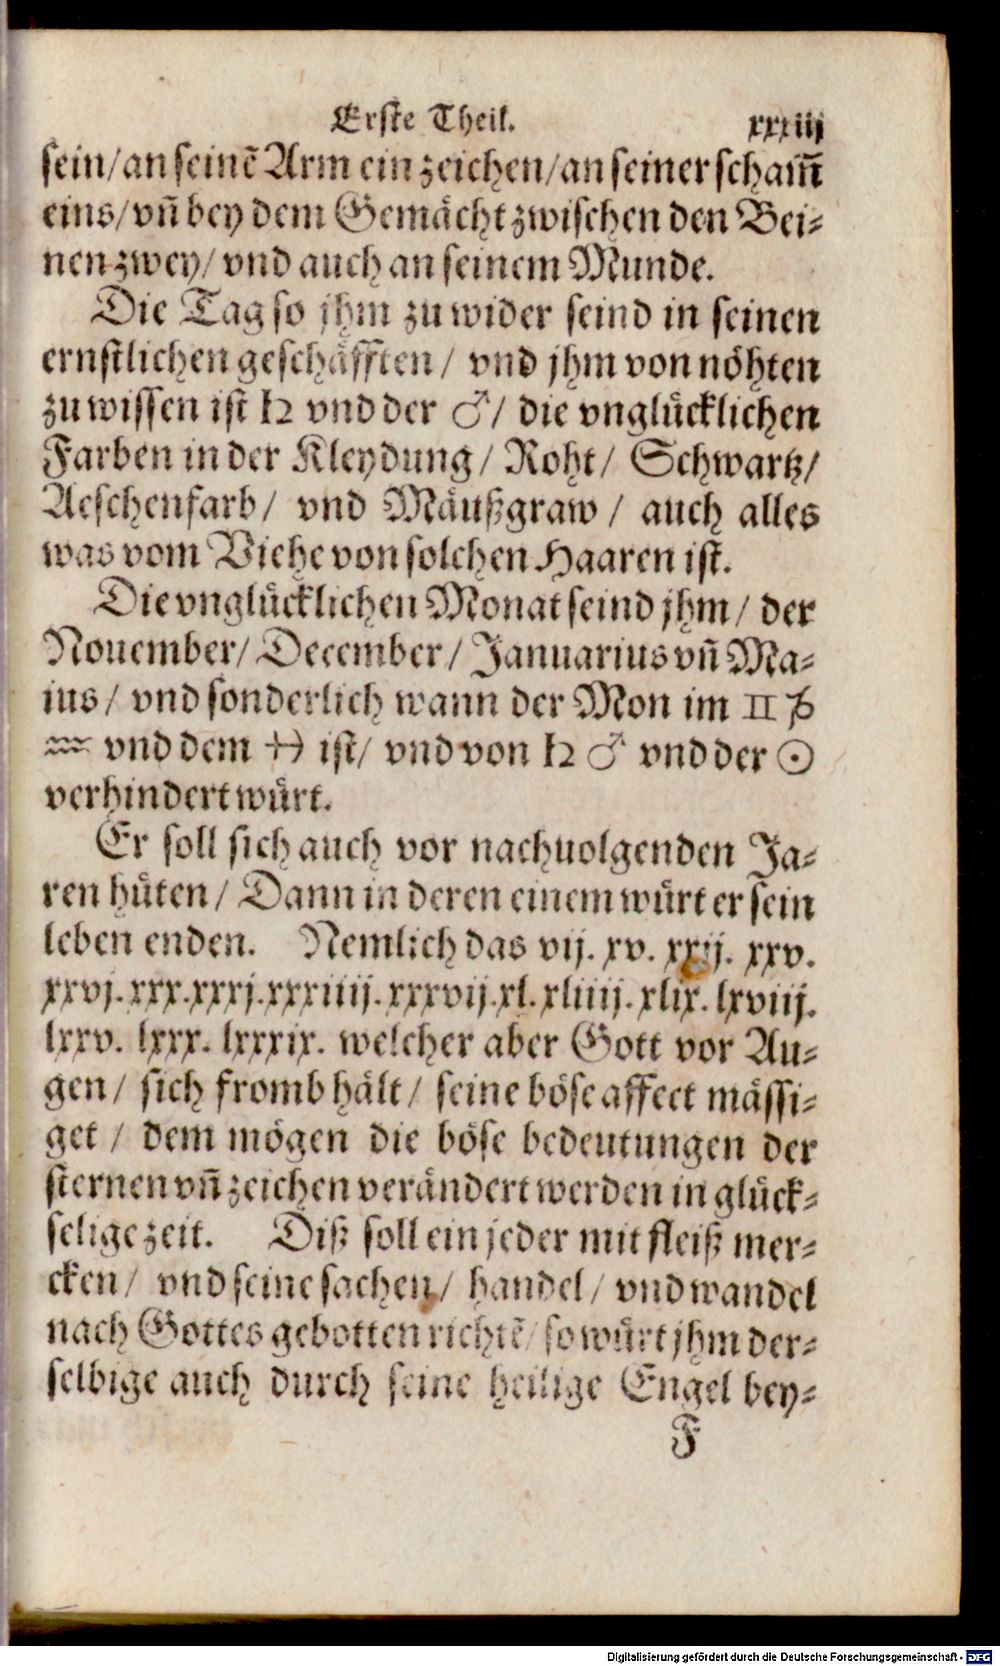 Erste Theil. xxxiij
sein/an seinē Arm ein zeichen/an seiner scham̃
eins/vñ bey dem Gemächt zwischen den Bei⸗
nen zwey/ vnd auch an seinem Munde.
Die Tag so jhm zu wider seind in seinen
ernstlichen geschäfften/ vnd jhm von nöhten
zu wissen ist ♄ vnd der ♂/ die vnglücklichen
Farben in der Kleydung/ Roht/ Schwartz/
Aeschenfarb/ vnd Mäußgraw/ auch alles
was vom Viehe von solchen Haaren ist.
Die vnglücklichen Monat seind jhm/ der
Nouember/ December/ Januarius vñ Ma⸗
ius/ vnd sonderlich wann der Mon im ♊ ♑
♒ vnd dem ♓ ist/ vnd von ♄ ♂ vnd der ☉
verhindert würt.
Er soll sich auch vor nachuolgenden Ja⸗
ren hüten/ Dann in deren einem würt er sein
leben enden. Nemlich das vij. xv. xxij. xxv.
xxvj. xxx. xxxj. xxxiiij. xxxvij. xl. xliiij. xlix. lxviij.
lxxv. lxxx. lxxxix. welcher aber Gott vor Au⸗
gen/ sich fromb hält/ seine böse affect mässi⸗
get/ dem mögen die böse bedeutungen der
sternen vñ zeichen verändert werden in glück⸗
selige zeit. Diß soll ein jeder mit fleiß mer⸗
cken/ vnd seine sachen/ handel/ vnd wandel
nach Gottes gebotten richtē/ so würt jhm der⸗
selbige auch durch seine heilige Engel bey⸗
F
Digitalisierung gefördert durch die Deutsche Forschungsgemeinschaft - DFG